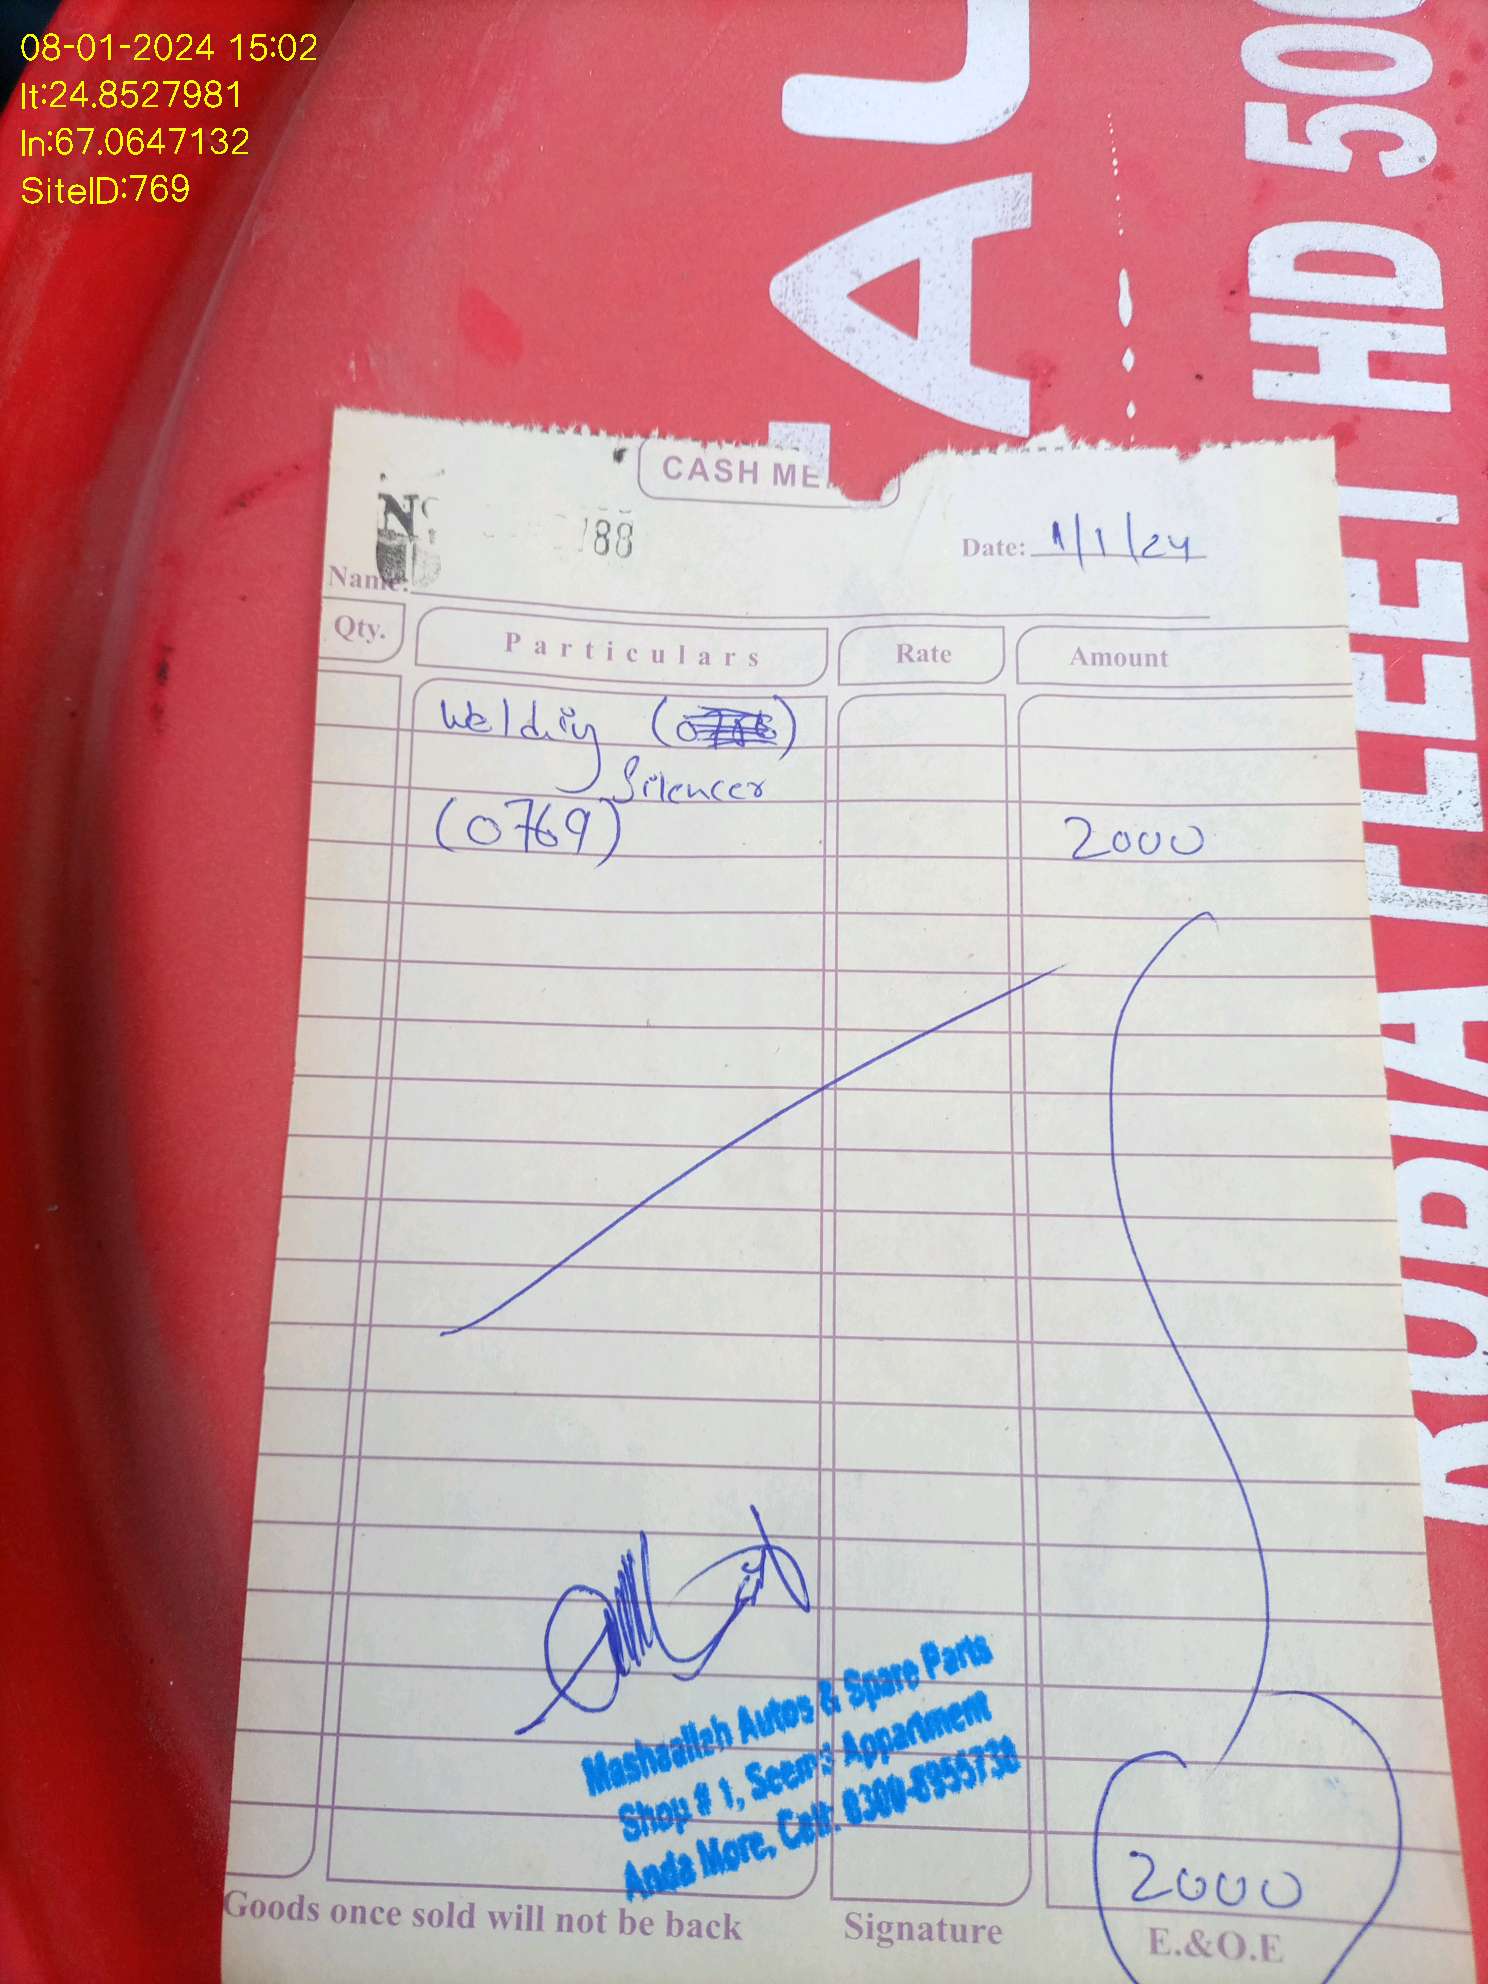 08-01-2024 15:02
lt:24.8527981
ln:67.0647132
SiteID:769
HD 500
RUBIA FLEET
CASH ME
No
788
Date: 1/1/24
Name:
Qty. Particulars Rate Amount
Welding
Silencer
(0769) 2000
Mashaallah Autos & Spare Parts
Shop # 1, Seema Appartment
Anda More, Cell: 0300-8955730
2000
Goods once sold will not be back Signature E.&O.E